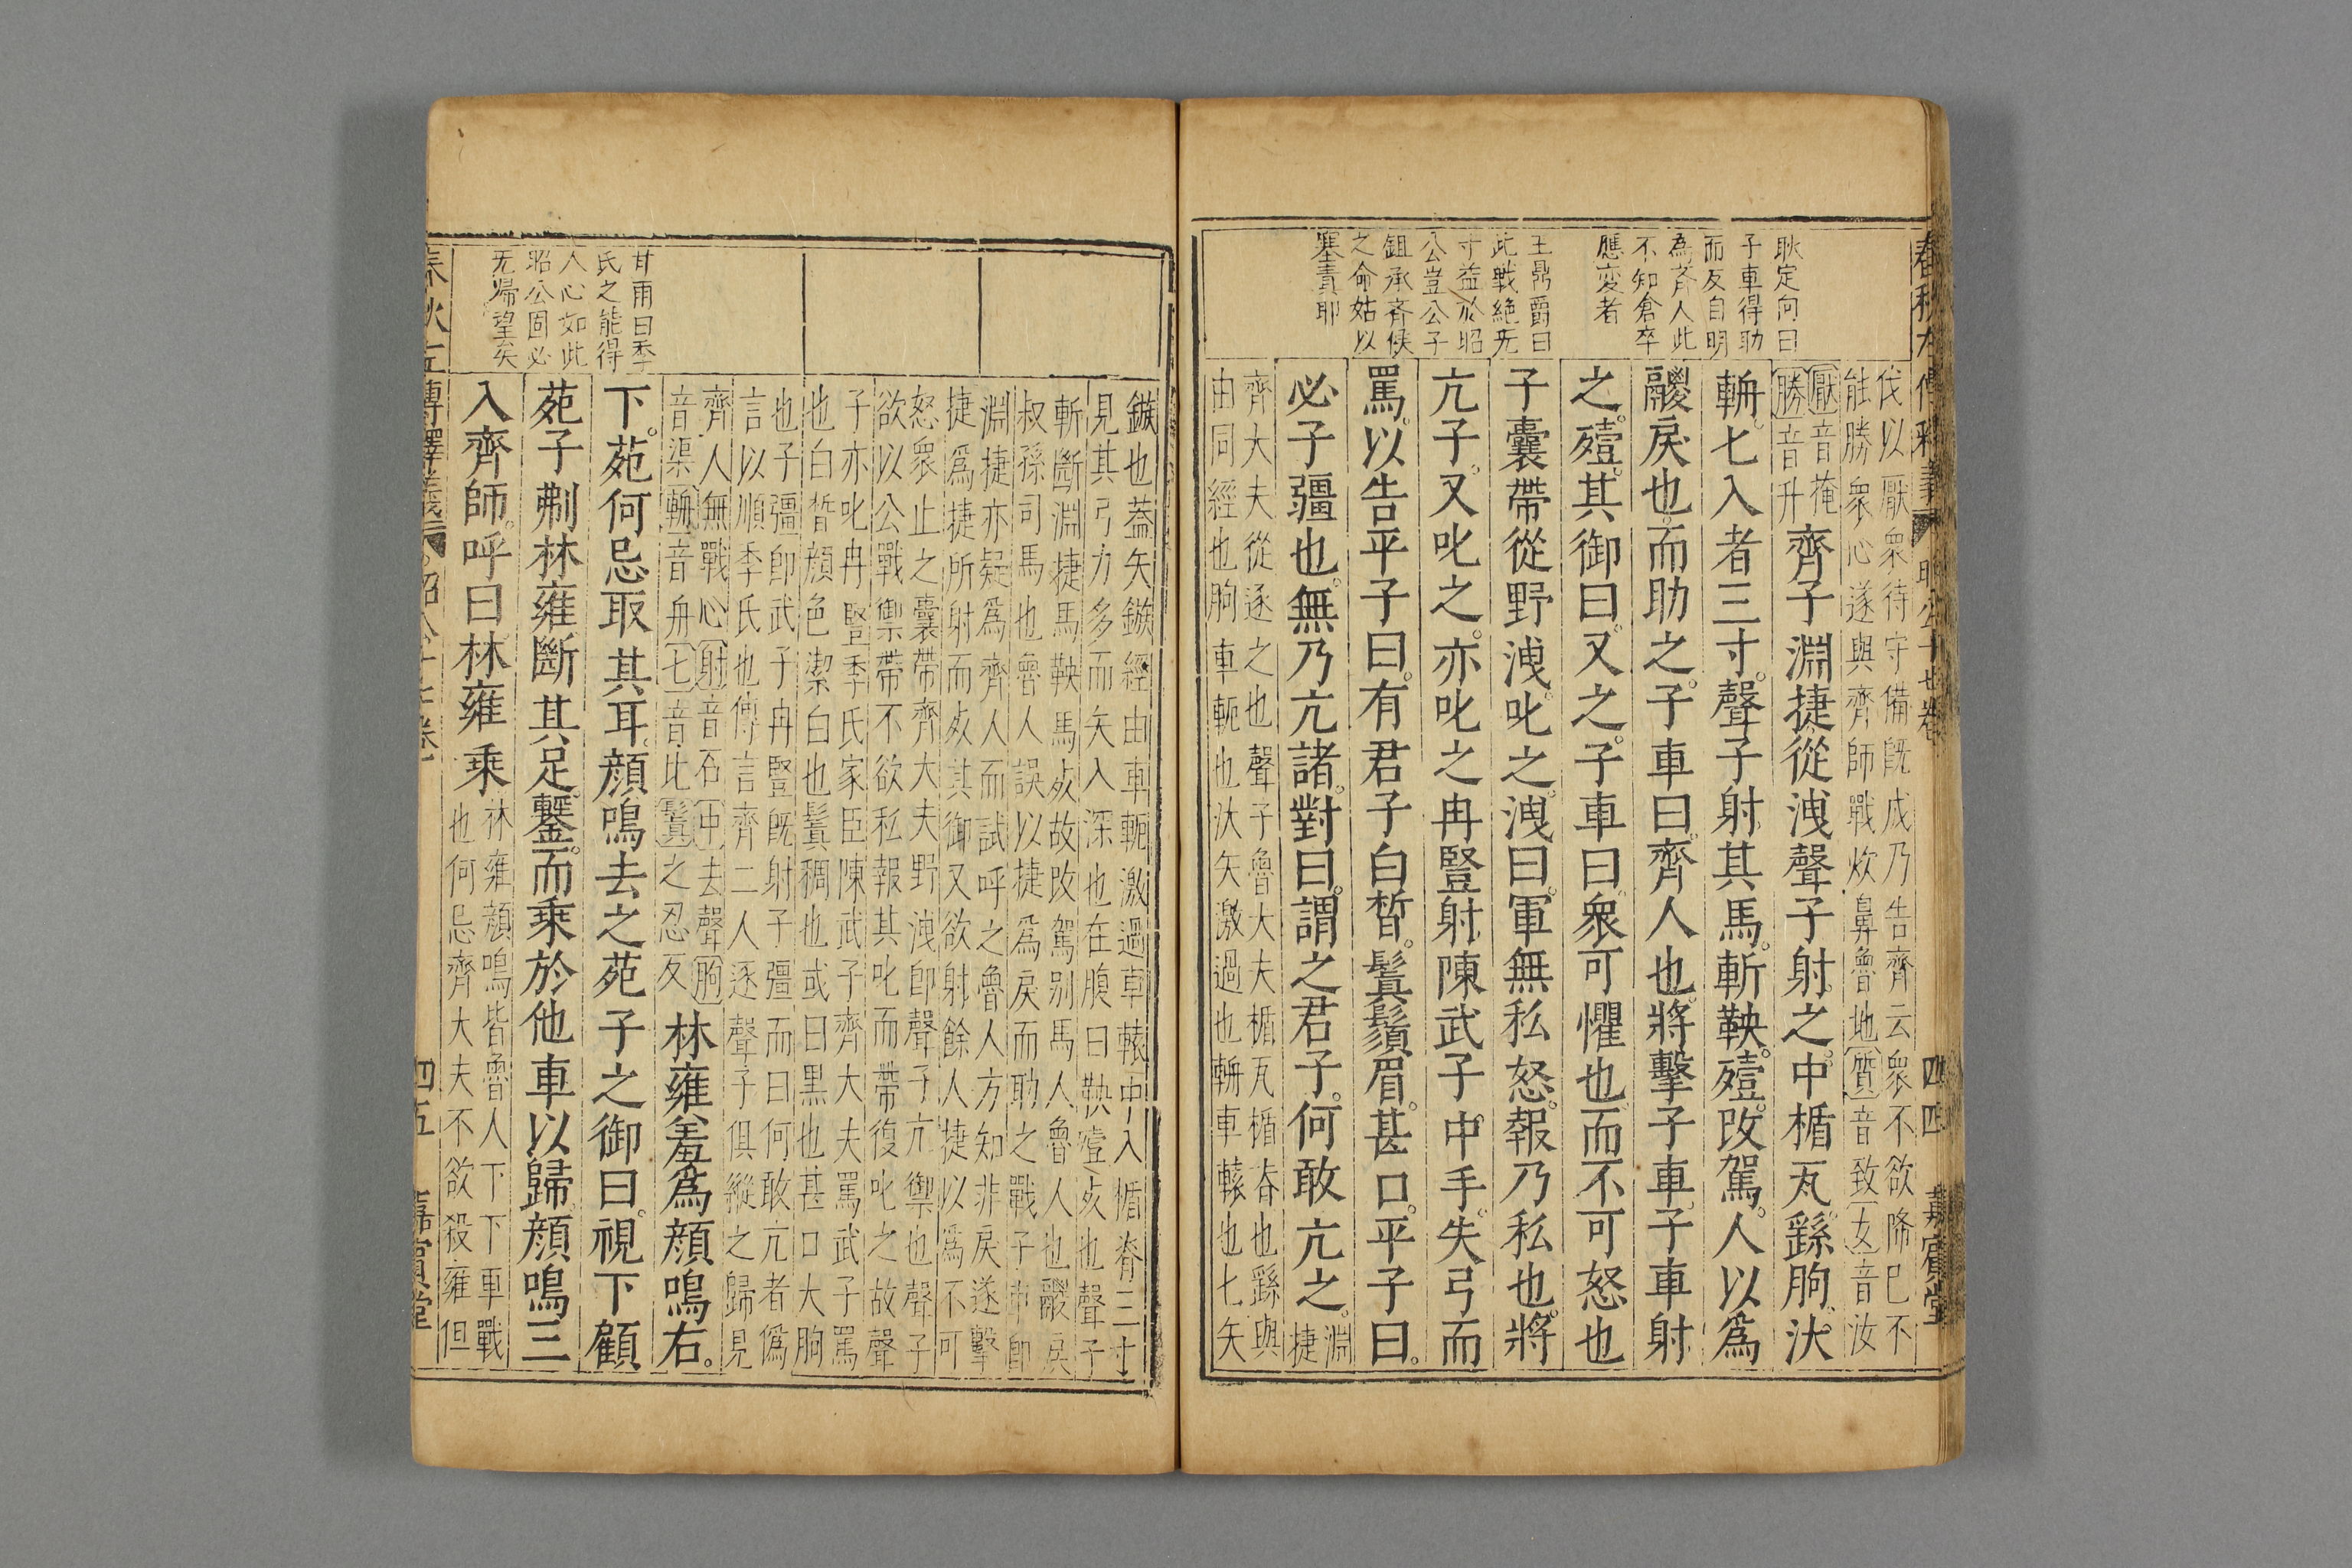 春秋左傳釋義
昭公十七卷
四四
嘉賓堂
耿定向曰
子車得助
而反自明
為斉人此
不知倉卒
應变者
王鼎爵曰
此戰絶无
寸益於昭
公豈公子
鉏承斉侯
之命姑以
塞責耶
伐以厭衆待守備既成乃告齊云衆不欲降巳不
能勝衆心遂與齊師戰炊鼻魯地質音致女音汝
厭音掩
勝音升
齊子淵捷從洩聲子射之中楯瓦繇朐汏
輈匕入者三寸聲子射其馬斬鞅殪改駕人以爲
鬷戾也而助之子車曰齊人也將擊子車子車射
之殪其御曰又之子車曰衆可懼也而不可怒也
子囊帶從野洩叱之洩曰軍無私怒報乃私也將
亢子又叱之亦叱之冉豎射陳武子中手失弓而
罵以告平子曰有君子白晳鬒鬚眉甚口平子曰
必子彊也無乃亢諸對曰謂之君子何敢亢之
淵
捷
齊大夫從逐之也聲子魯大夫楯瓦楯脊也繇與
由同經也朐車軛也汏矢激過也輈車轅也匕矢
鏃也葢矢鏃經由車軛激過車轅中入楯脊三寸
見其弓力多而矢入深也在腹曰鞅殪死也聲子
斬斷淵捷馬鞅馬死故改駕别馬人魯人也鬷戾
叔孫司馬也魯人誤以捷爲戾而助之戰子車即
淵捷亦疑爲齊人而試呼之魯人方知非戾遂擊
捷爲捷所射而死其御又欲射餘人捷以爲不可
怒衆止之囊帶齊大夫野洩即聲子亢禦也聲子
欲以公戰禦帶不欲私報其叱而帶復叱之故聲
子亦叱冉豎季氏家臣陳武子齊大夫罵武子罵
也白晳顔色潔白也鬒稠也或曰黒也甚口大胸
也子彊即武子冉豎既射子彊而曰何敢亢者僞
言以順季氏也傅言齊二人逐聲子俱縱之歸見
齊人無戰心射音石中去聲朐
音渠輈音舟匕音比鬒之忍反
林雍羞爲顔鳴右
下苑何忌取其耳顔鳴去之苑子之御曰視下顧
苑子刜林雍斷其足鑋而乗於他車以歸顔鳴三
入齊師呼曰林雍乗
林雍顔鳴皆魯人下下車戰
也何忌齊大夫不欲殺雍但
甘雨曰季
氏之能得
人心如此
昭公固必
无帰望矣
春秋左傳釋義
昭公十七卷
四五
嘉賓堂